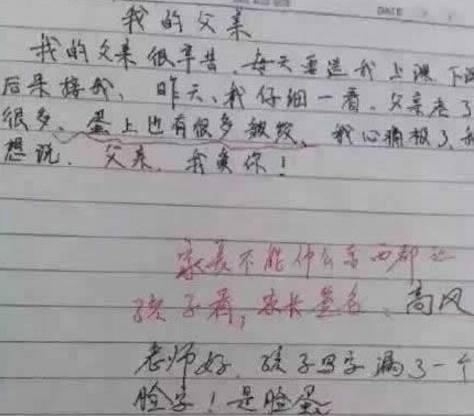 DATE
我的父亲
我的父亲很辛苦,每天要送我上课,下课
后来接我、昨天、我仔细一看,父亲老了
很多、蛋上也有很多皱纹、我心痛极了,我
想说,父亲,我爱你!
家长不能什么东西都让
孩子看,家长签名、高风
老师好,孩子写字漏了一个
脸字!是脸蛋